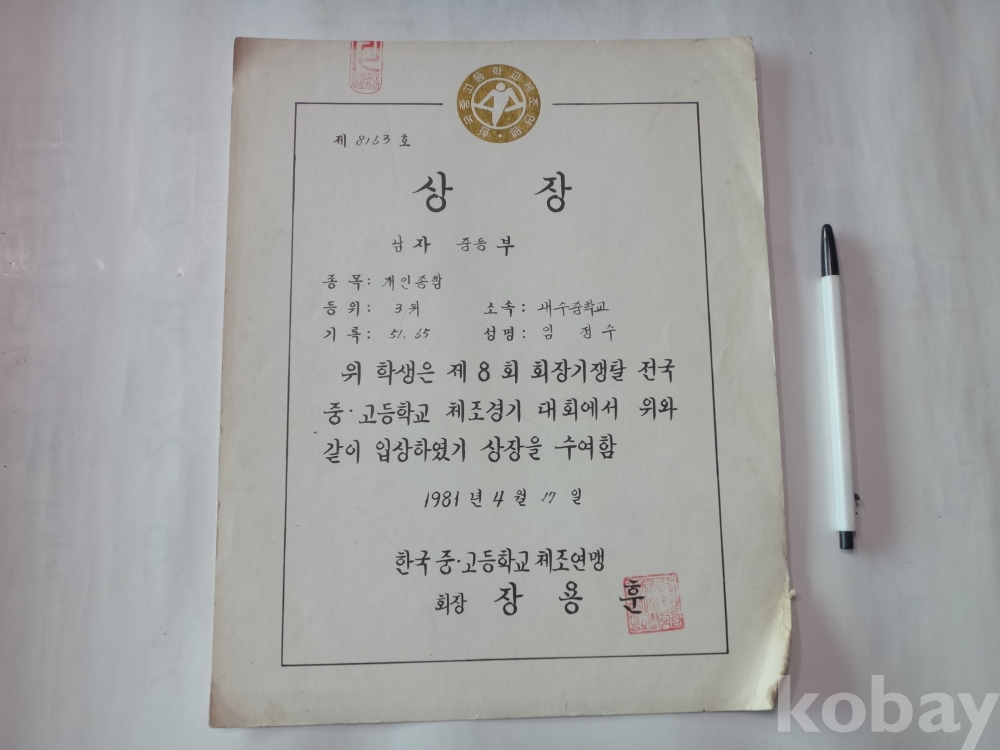 한국중고등학교체조연맹
제 8163 호
상 장
남자 중등부
종목: 개인종합
등위: 3위 소속: 대수중학교
기록: 51.65 성명: 임 정 수
위 학생은 제8회 회장기쟁탈 전국
중·고등학교 체조경기 대회에서 위와
같이 입상하였기 상장을 수여함
1981년 4월 17일
한국 중·고등학교 체조연맹
회장 장 용 훈
kobay